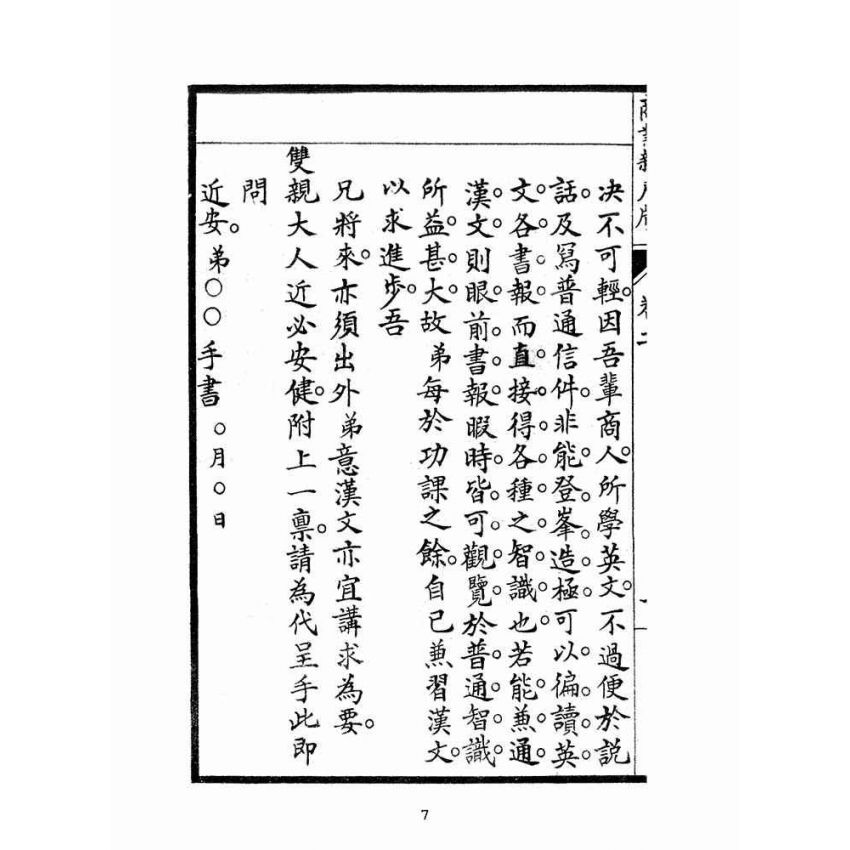 卷
決不可輕。因吾輩商人。所學英文。不過便於說
話。及寫普通信件。非能登峯造極。可以徧讀英
文。各書報。而直接得各種之智識也。若能兼通
漢文。則眼前書報。暇時皆可觀覽。於普通智識。
所益甚大。故 弟每於功課之餘。自己兼習漢文。
以求進步。吾
兄將來。亦須出外 弟意漢文亦宜講求為要。
雙親大人近必安健。附上一稟。請為代呈手此即
問
近安。弟〇〇手書 〇月〇日
7